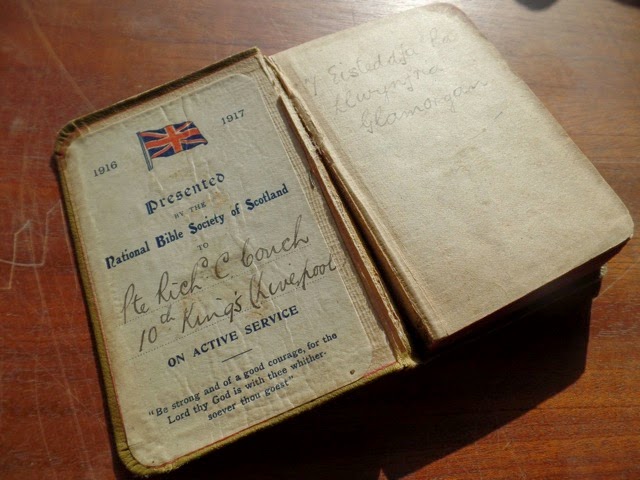 1916 1917
Presented
BY THE
National Bible Society of Scotland
TO
Pte Richd C. Couch
10th King's (Liverpool
ON ACTIVE SERVICE
"Be strong and of a good courage, for the
Lord thy God is with thee whither-
soever thou goest"
Glamorgan